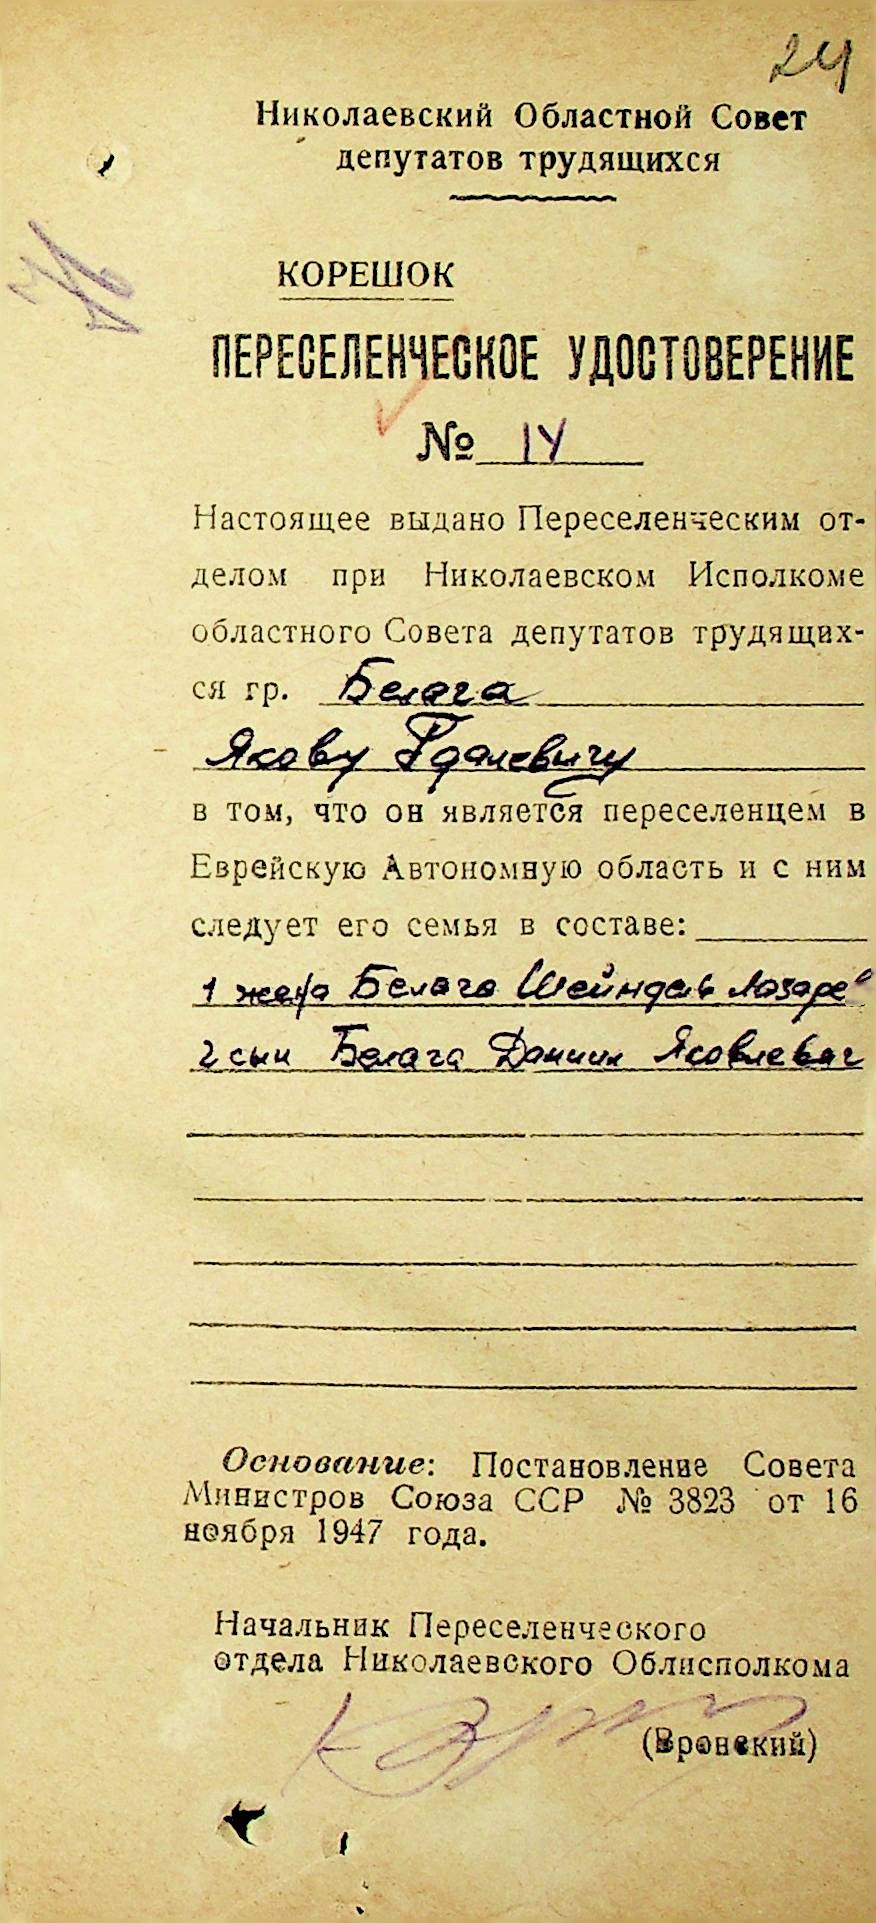 24
Николаевский Областной Совет
депутатов трудящихся
КОРЕШОК
ПЕРЕСЕЛЕНЧЕСКОЕ УДОСТОВЕРЕНИЕ
№ 14
Настоящее выдано Переселенческим от-
делом при Николаевском Исполкоме
областного Совета депутатов трудящих-
ся гр. Белага
Якову Гдалевичу
в том, что он является переселенцем в
Еврейскую Автономную область и с ним
следует его семья в составе:
1 жена Белага Лазаре
2 сын Белага Даниил Яковлевич
Основание: Постановление Совета
Министров Союза ССР № 3823 от 16
ноября 1947 года.
Начальник Переселенческого
отдела Николаевского Облисполкома
(Вронский)